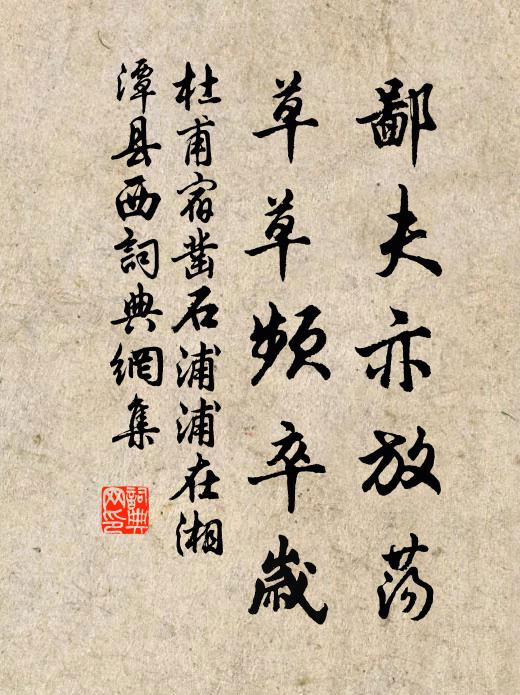 鄙夫亦放荡
草草频卒歲
杜甫宿凿石浦浦在湘
潭县西詞典網集
詞典
网印